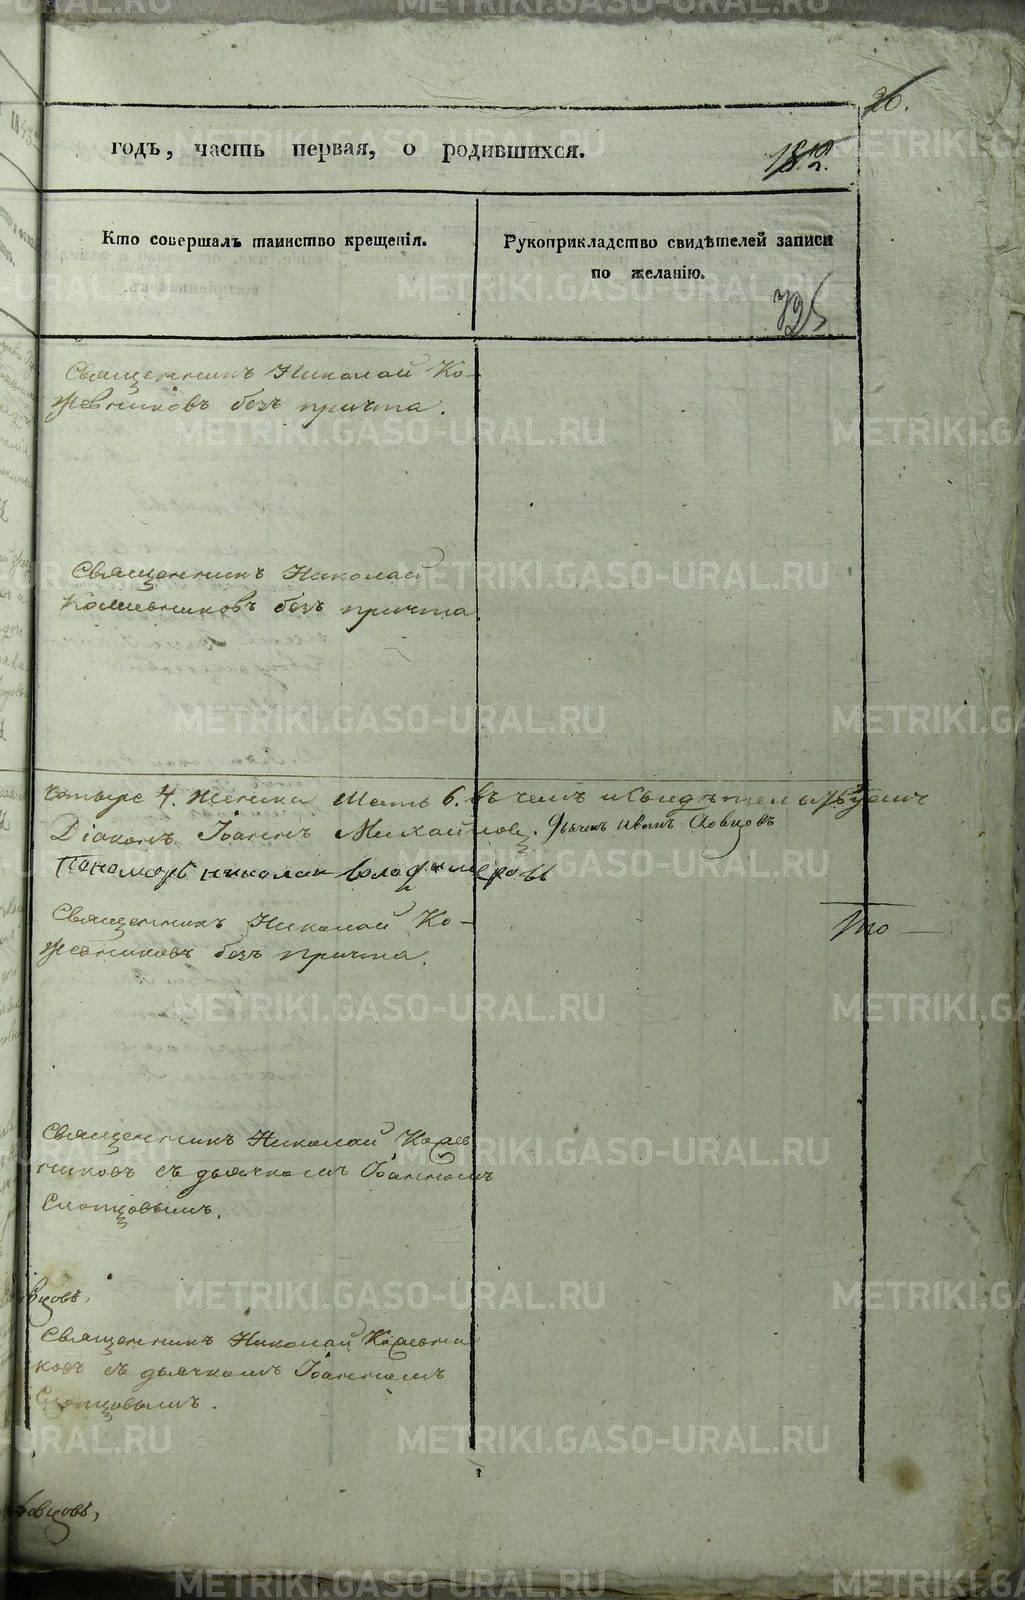 26.
годъ, часть первая, о родившихся.
Кто совершалъ таинство крещенія.
Рукоприкладство свидѣтелей записи
по желанію.
725
Священникъ Николай Ко-
жевниковъ безъ причта.
Священникъ Николай
Кожевниковъ безъ причта
четыре 4. женска шесть 6. въ чемъ и свидѣтельствуемъ
Діаконъ Іоаннъ Михайловъ. Дьячекъ Иванъ
Пономарь Николай
Священникъ Николай Ко-
жевниковъ безъ причта.
Священникъ Николай Кожев
никовъ съ дьячкомъ Іоанномъ
Словцовымъ.
Священникъ Николай Кожевни
ковъ съ дьячкомъ Іоанномъ
Словцовымъ.
METRIKI.GASO-URAL.RU